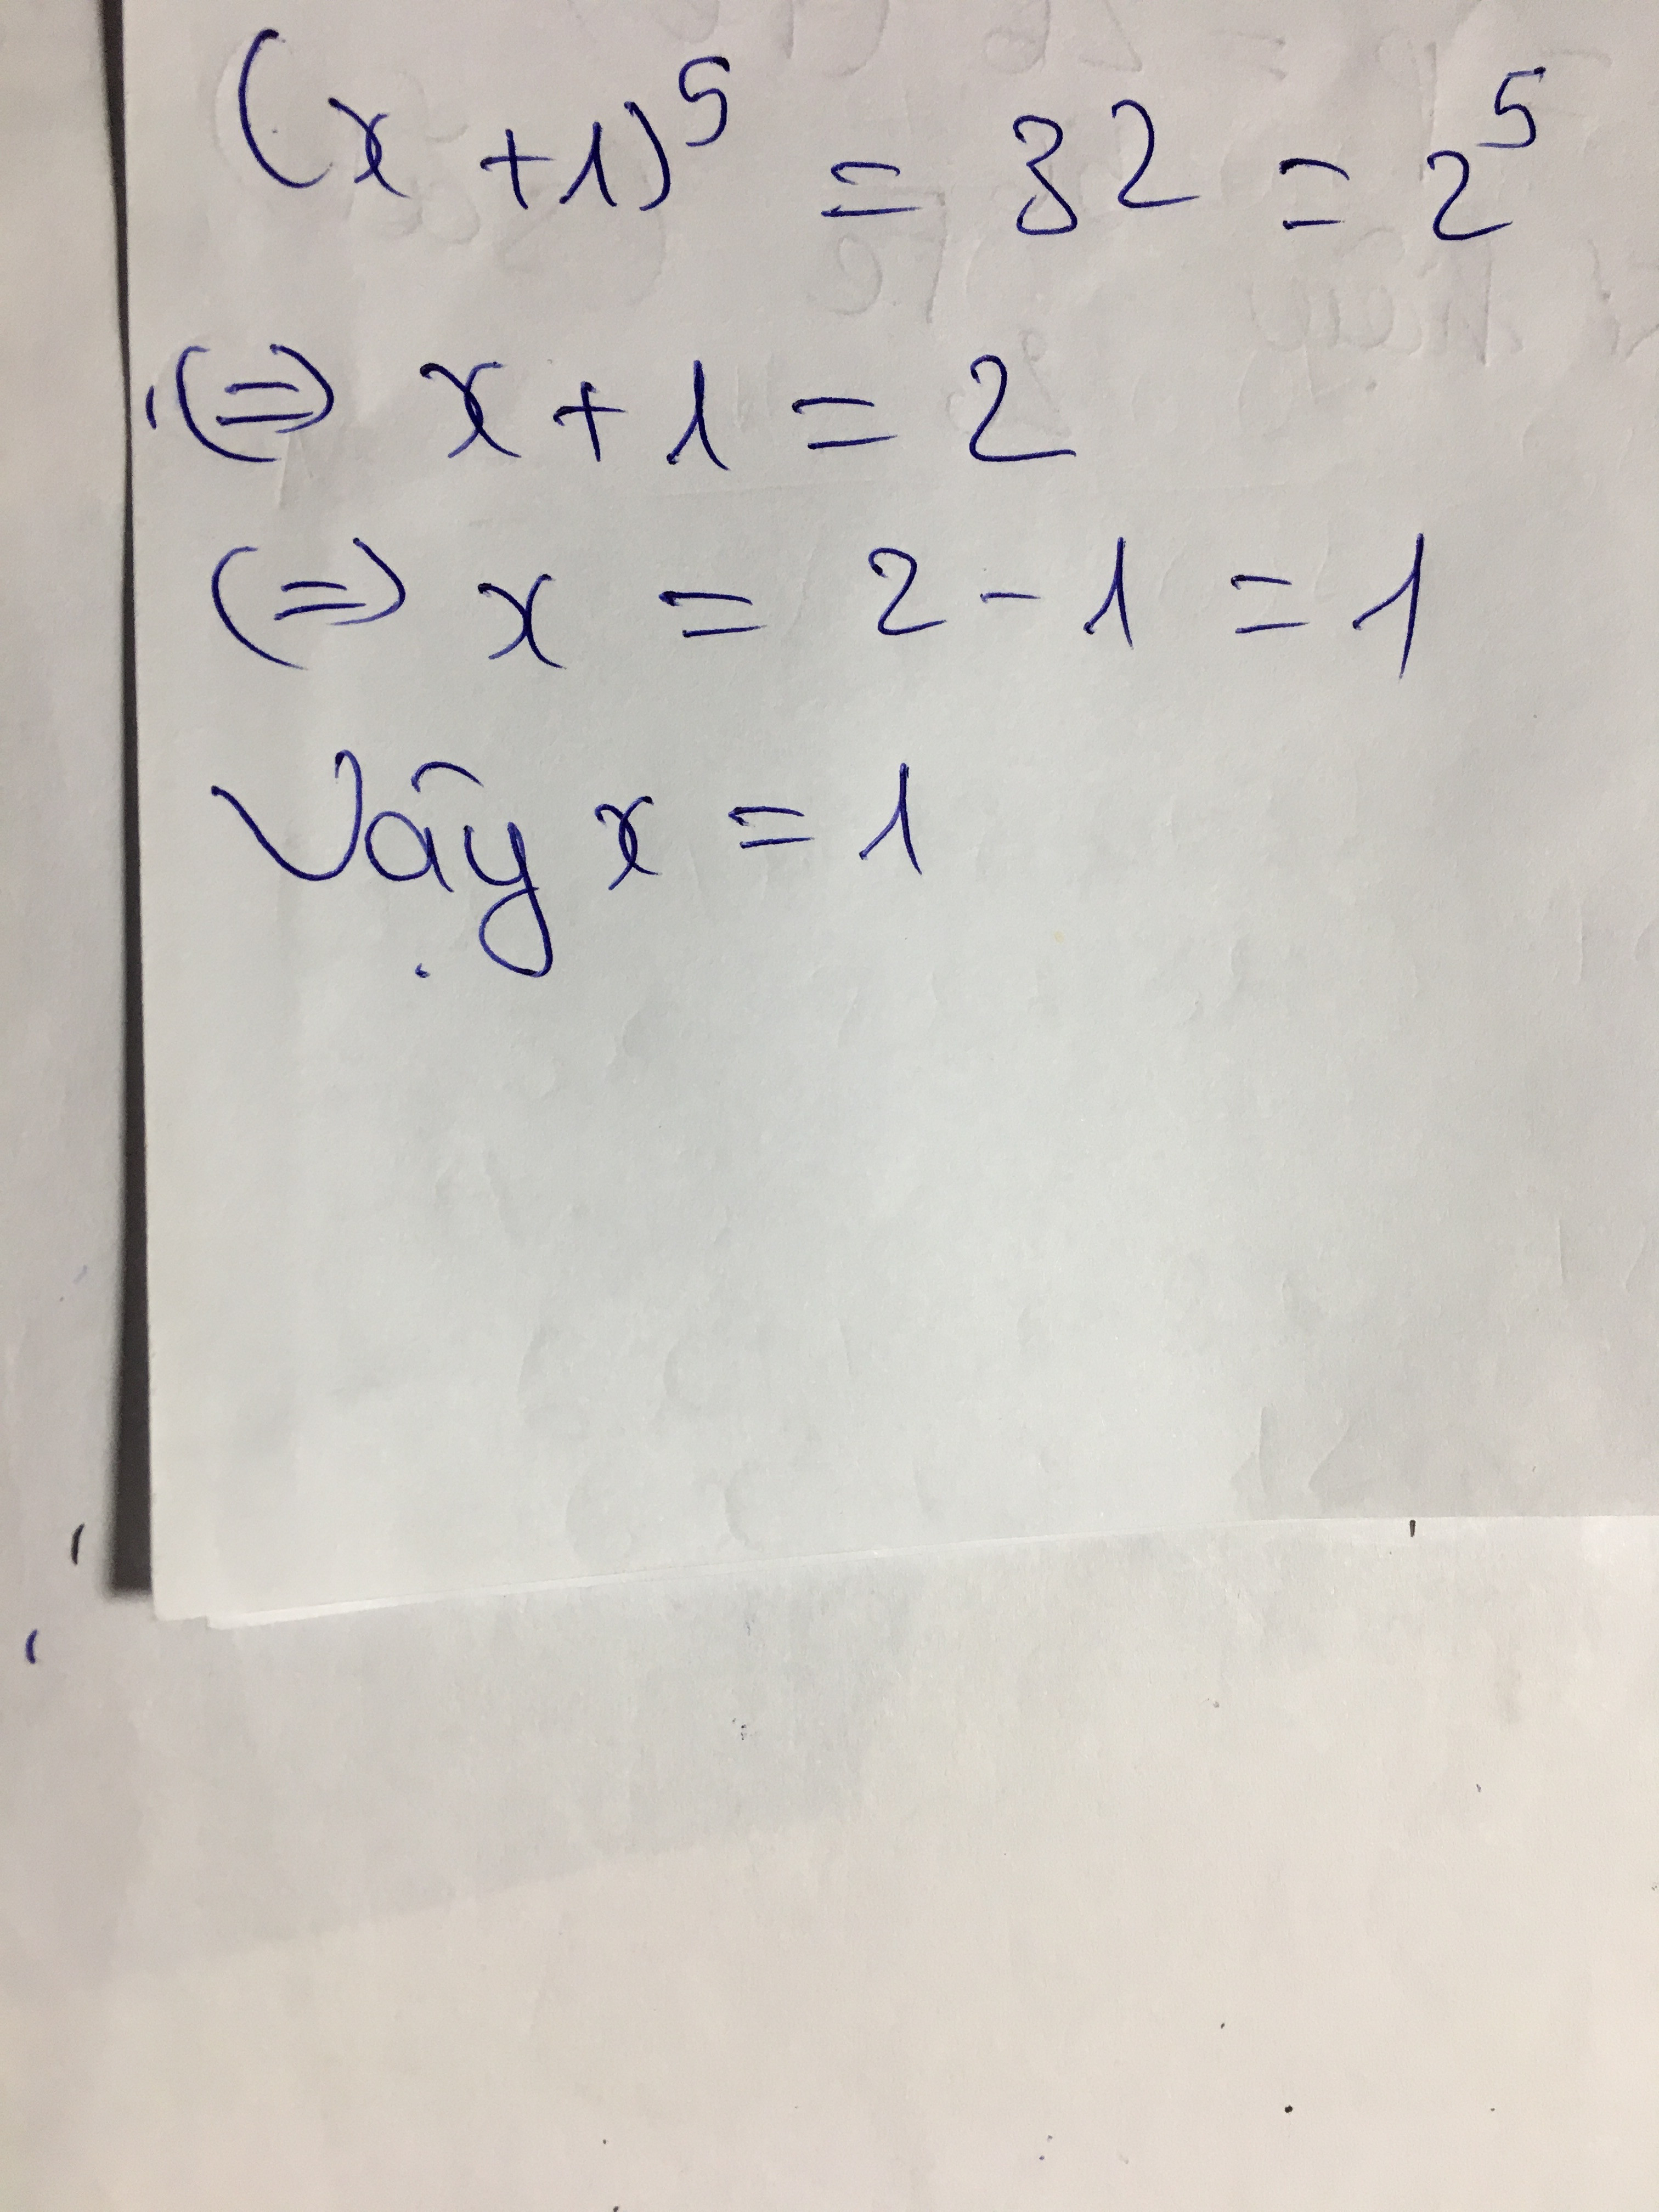 (x + 1)⁵ = 32 = 2⁵
(=) x + 1 = 2
(=) x = 2 - 1 = 1
Vậy x = 1